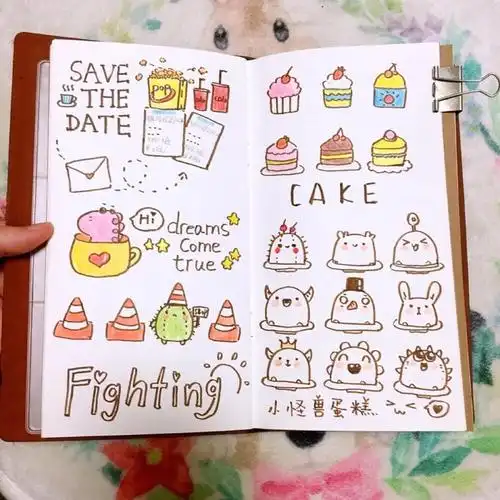 SAVE
THE
DATE
POP
Hi
dreams
come
true
Fighting
CAKE
小怪兽蛋糕